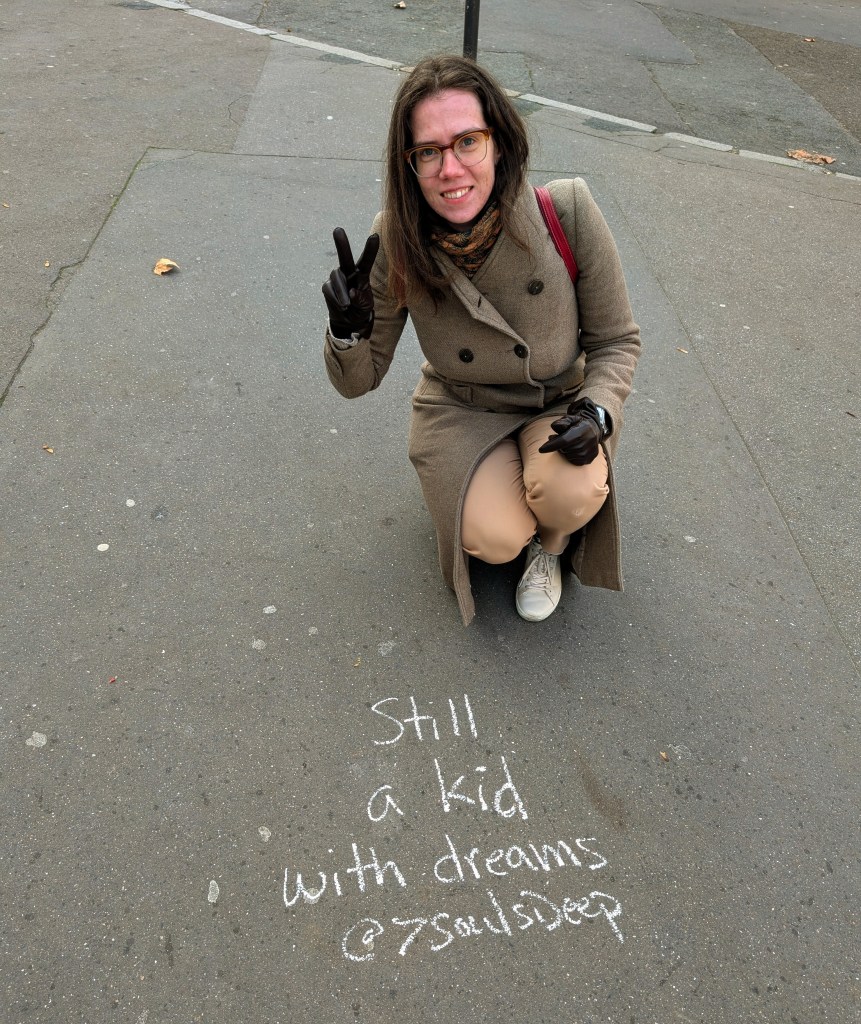 Still
a kid
with dreams
@7soulsDeep